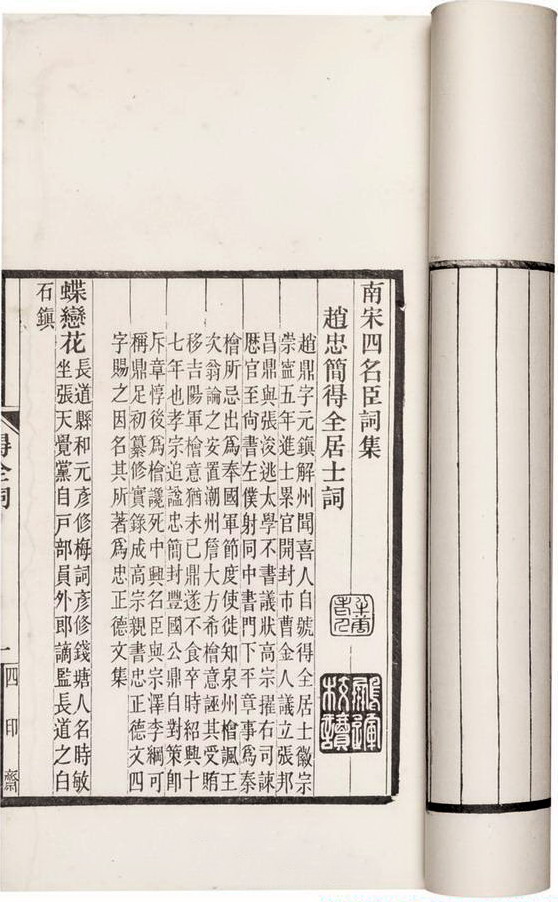 南宋四名臣詞集
趙忠簡得全居士詞
趙鼎字元鎮解州聞喜人自號得全居士徽宗
崇甯五年進士累官開封市曹金人議立張邦
昌鼎與張浚逃太學不書議狀高宗擢右司諫
歷官至尙書左僕射同中書門下平章事爲秦
檜所忌出爲奉國軍節度使徙知泉州檜諷王
次翁論之安置潮州詹大方希檜意誣其受賄
移吉陽軍檜意猶未已鼎遂不食卒時紹興十
七年也孝宗追諡忠簡封豐國公鼎自對策卽
斥章惇後爲檜讒死中興名臣與宗澤李綱可
稱鼎足初纂修實錄成高宗親書忠正德文四
字賜之因名其所著爲忠正德文集
蝶戀花 長道縣和元彥修梅詞彥修錢塘人名時敏
坐張天覺黨自戸部員外郎謫監長道之白
石鎮
得全詞
一
四印齋
鵬運校讀